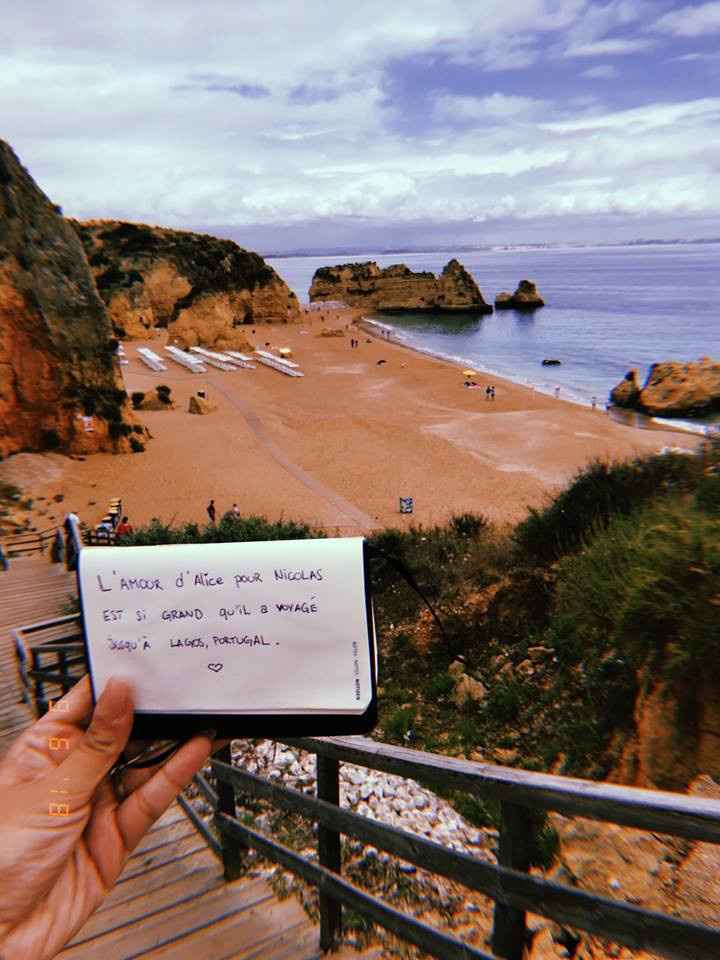 L'AMOUR d'Alice pour NICOLAS
EST SI GRAND qu'il a VOYAGÉ
jusqu'à LAGOS, PORTUGAL.
♡